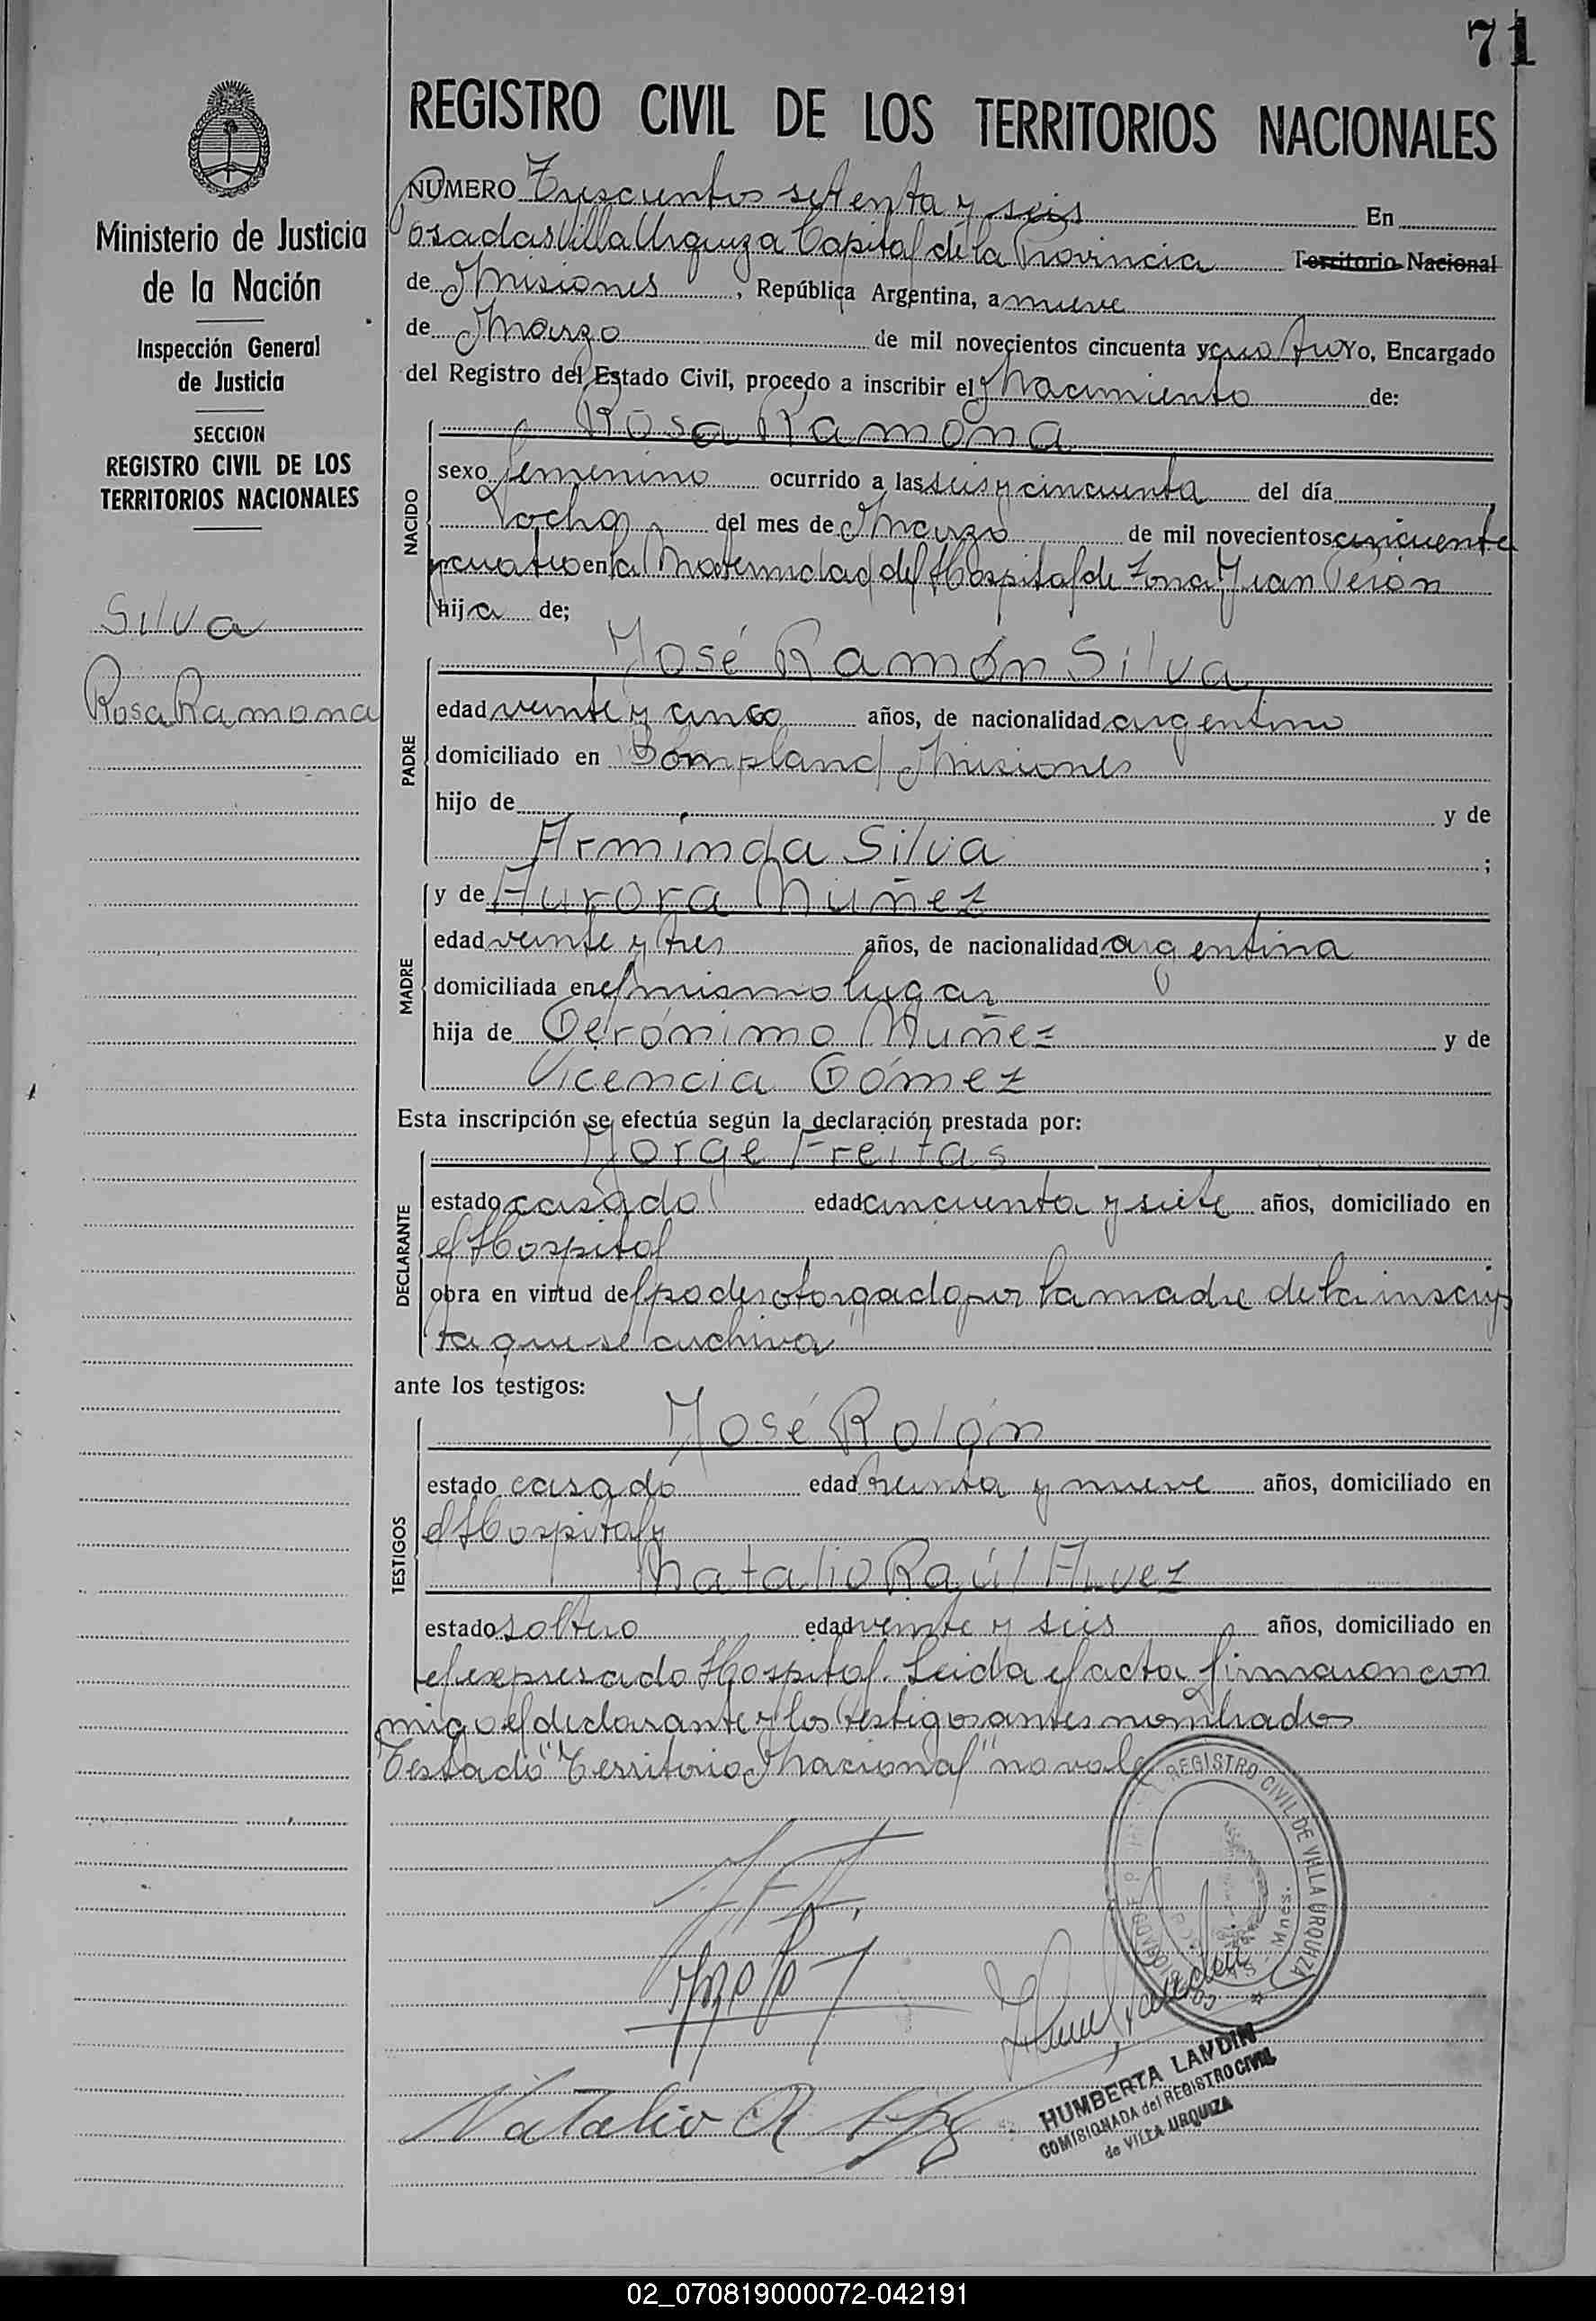 71
REGISTRO CIVIL DE LOS TERRITORIOS NACIONALES
Ministerio de Justicia
de la Nación
Inspección General
de Justicia
SECCION
REGISTRO CIVIL DE LOS
TERRITORIOS NACIONALES
Silva
Rosa Ramona
NUMERO Trescientos setenta y seis En
Posadas Villa Urquiza Capital de la Provincia Territorio Nacional
de Misiones, República Argentina, a nueve
de Marzo de mil novecientos cincuenta y cuatro Yo, Encargado
del Registro del Estado Civil, procedo a inscribir el Nacimiento de:
NACIDO
Rosa Ramona
sexo femenino ocurrido a las seis y cincuenta del día
ocho del mes de Marzo de mil novecientos cincuenta
y cuatro en la Maternidad del Hospital de Zona Juan Perón
hija de;
PADRE
José Ramón Silva
edad veinte y cinco años, de nacionalidad argentino
domiciliado en Bompland Misiones
hijo de y de
Arminda Silva ;
MADRE
y de Aurora Nuñez
edad veinte y tres años, de nacionalidad argentina
domiciliada en el mismo lugar
hija de Gerónimo Nuñez y de
Vicencia Gómez
Esta inscripción se efectúa según la declaración prestada por:
DECLARANTE
Jorge Freitas
estado casado edad cincuenta y siete años, domiciliado en
el Hospital
obra en virtud del poder otorgado por la madre de la inscrip
ta que se archiva
ante los testigos:
TESTIGOS
José Rolón
estado casado edad treinta y nueve años, domiciliado en
el Hospital y
Natalio Raúl Alvez
estado soltero edad veinte y seis años, domiciliado en
el expresado Hospital. Leida el acta firmaron con
migo el declarante y los testigos antes nombrados
Testado "Territorio Nacional" no vale
REGISTRO CIVIL DE VILLA URQUIZA
Mnes.
Natalio R
HUMBERTA LANDIN
COMISIONADA del REGISTRO CIVIL
de VILLA URQUIZA
02_070819000072-042191